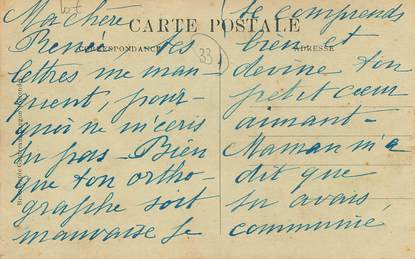 Ma chère
CARTE POSTALE
CORRESPONDANCE
ADRESSE
33
Renée tes
lettres me man-
quent, pour-
quoi ne m'écris
tu pas - Bien
que ton ortho-
graphe soit
mauvaise je
te comprends
bien et
devine ton
petit cœur
aimant -
Maman m'a
dit que
tu avais
communié